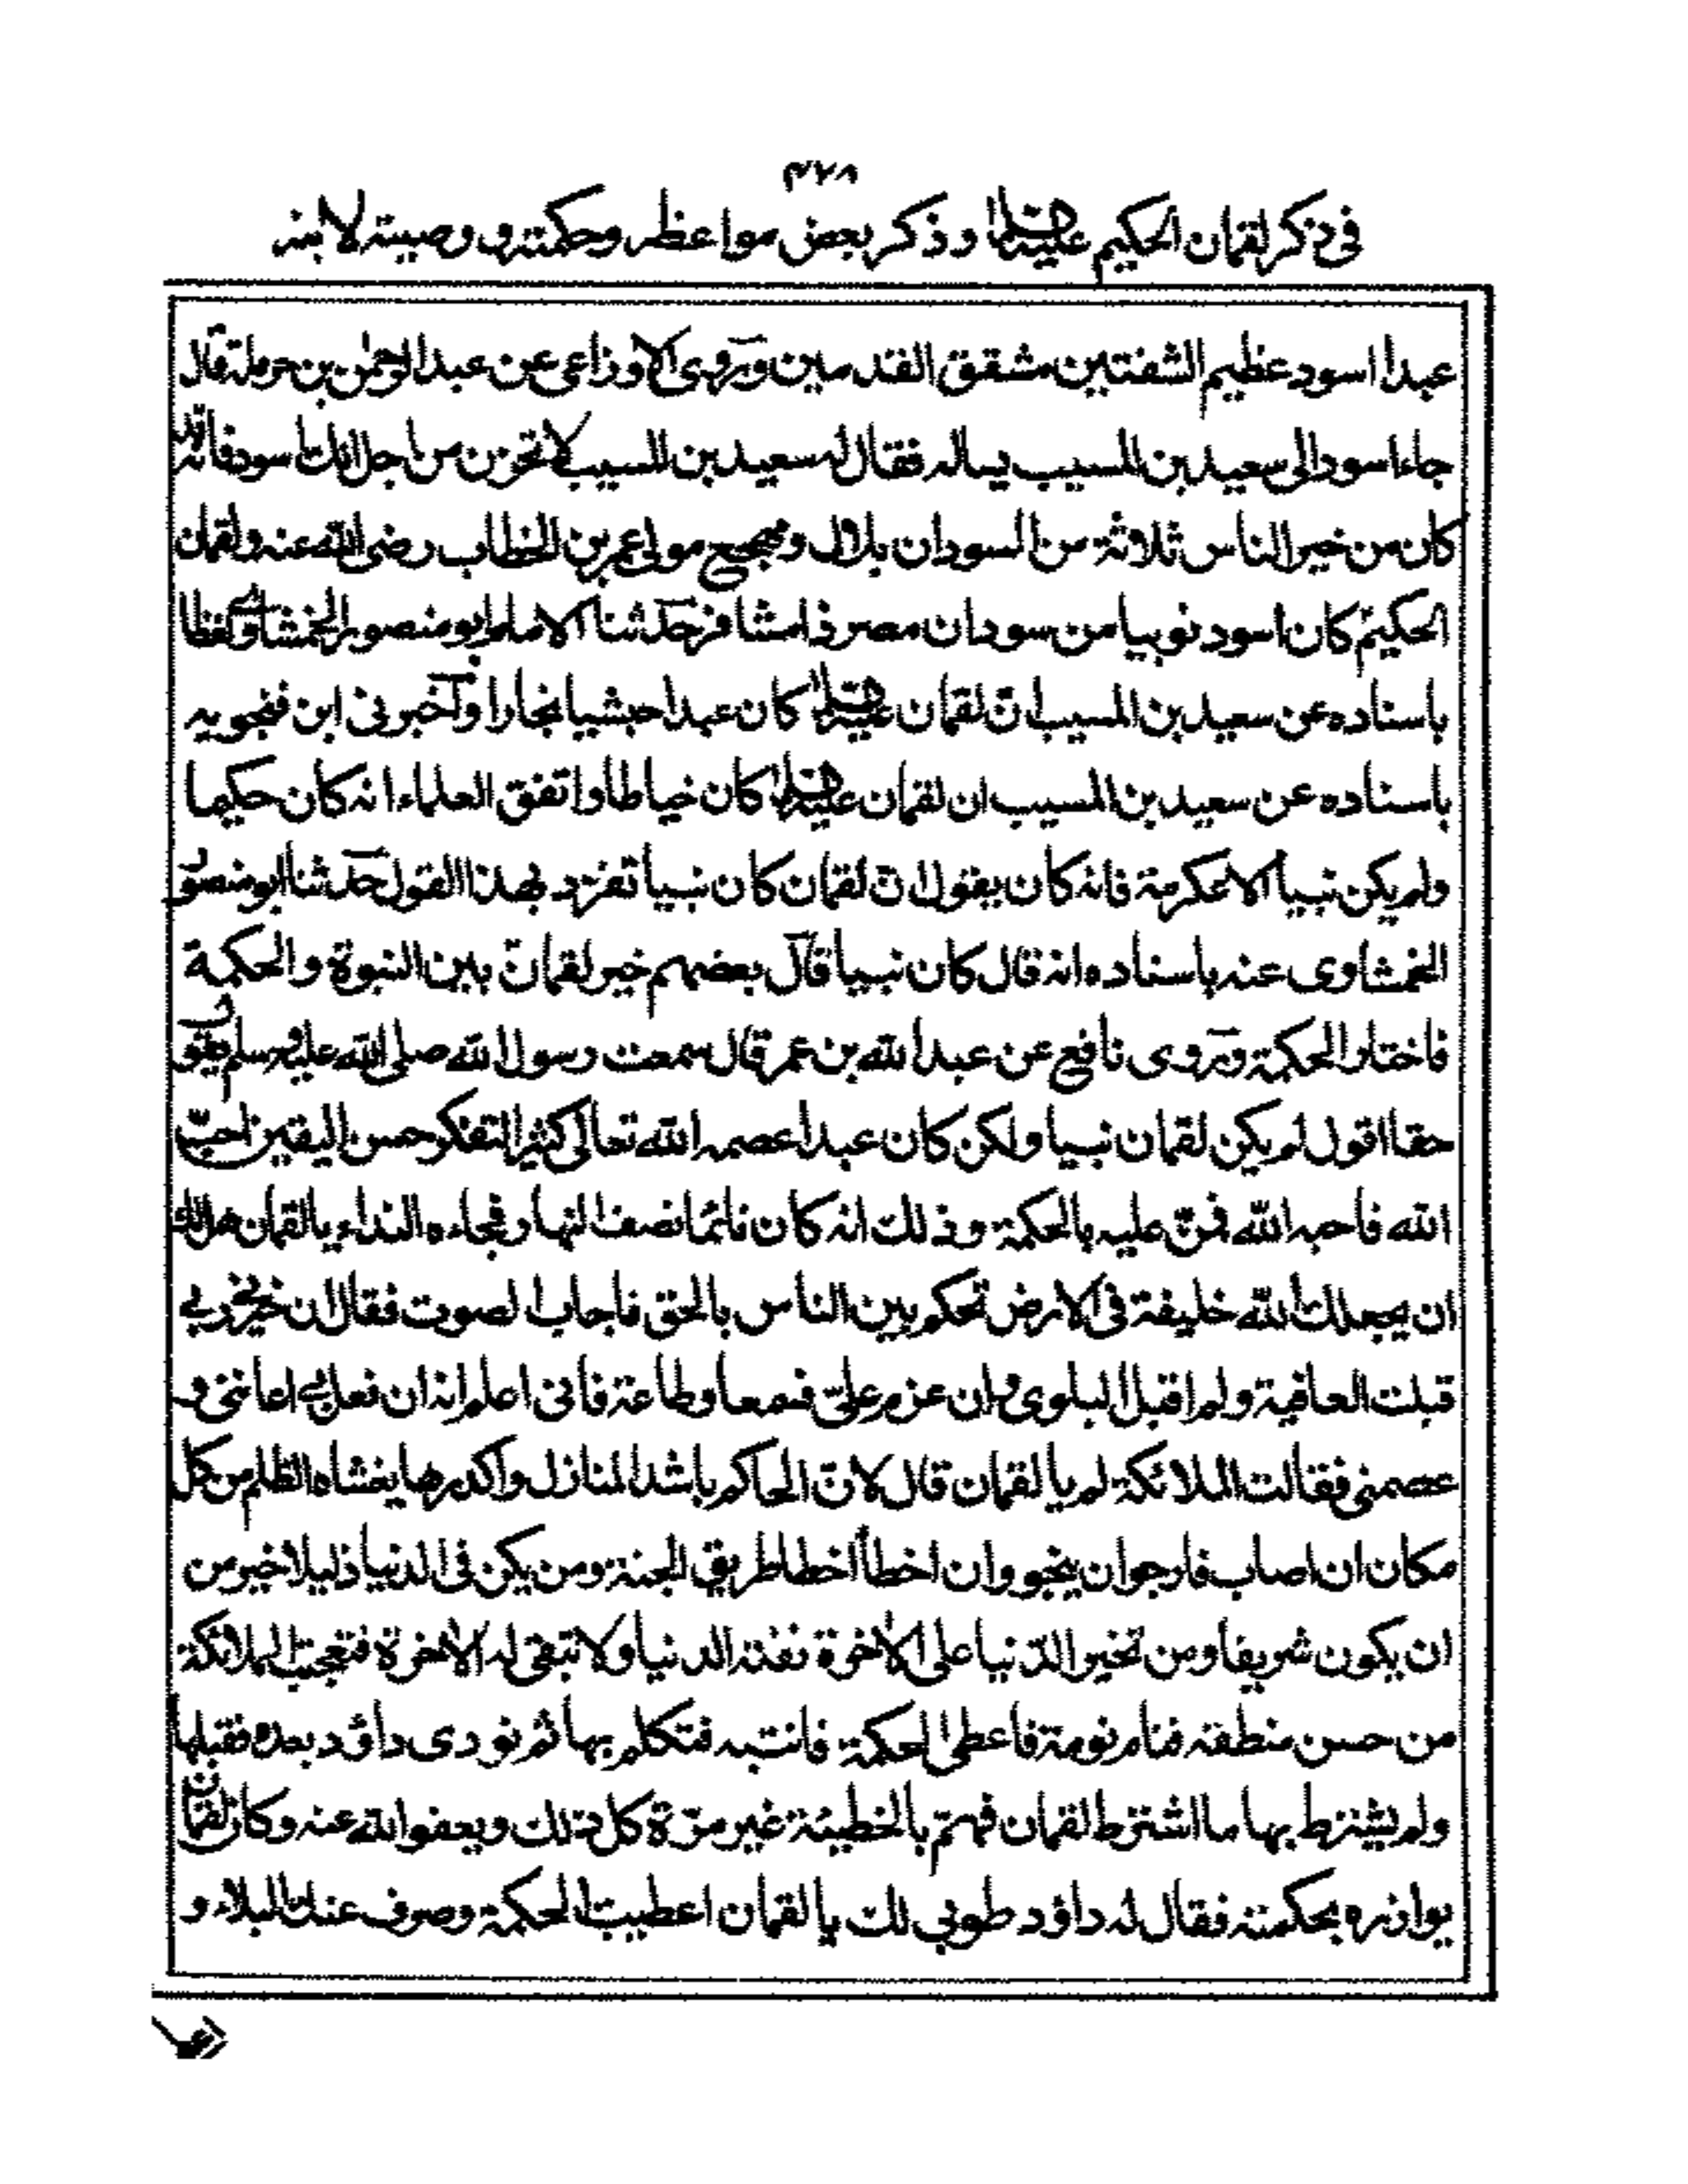 ٤٢٨
في ذكر لقمان الحكيم عليه السلام وذكر بعض مواعظه وحكمته ووصيته لابنه
عبدا اسود عظيم الشفتين مشقق القدمين وروى الاوزاعي عن عبد الرحمٰن بن حرملة قال
جاء اسود الى سعيد بن المسيب يساله فقال له سعيد بن المسيب لا تحزن من اجل انك اسود فانه قد
كان من خير الناس ثلاثة من السودان بلال ومهجع مولى عمر بن الخطاب رضي الله عنه ولقمان
الحكيم كان اسود نوبيا من سودان مصر ذا مشافر حدثنا الامام ابو منصور الخمشاوي لفظا
باسناده عن سعيد بن المسيب ان لقمان عليه السلام كان عبدا حبشيا نجارا واخبرني ابن فنجويه
باسناده عن سعيد بن المسيب ان لقمان عليه السلام كان خياطا واتفق العلماء انه كان حكيما
ولم يكن نبيا الا عكرمة فانه كان يقول ان لقمان كان نبيا تفرد بهذا القول حدثنا ابو منصور
الخمشاوى عنه باسناده انه قال كان نبيا قال بعضهم خير لقمان بين النبوة والحكمة
فاختار الحكمة وروى نافع عن عبد الله بن عمر قال سمعت رسول الله صلى الله عليه وسلم يقول
حقا اقول لم يكن لقمان نبيا ولكن كان عبدا عصمه الله تعالى كثير التفكر حسن اليقين احب
الله فاحبه الله فمنّ عليه بالحكمة وذلك انه كان نائما نصف النهار فجاءه النداء يا لقمان هل لك
ان يجعلك الله خليفة في الارض تحكم بين الناس بالحق فاجاب الصوت فقال ان خيرني ربي
قبلت العافية ولم اقبل البلوى وان عزم علىّ فسمعا وطاعة فاني اعلم انه ان فعل بي اعانني و
عصمني فقالت الملائكة لم يا لقمان قال لانّ الحاكم باشد المنازل واكدرها يغشاه الظلم من كل
مكان ان اصاب فارجو ان ينجو وان اخطأ اخطا طريق الجنة ومن يكن في الدنيا ذليلا خير من
ان يكون شريفا ومن تخير الدّنيا على الآخرة تفته الدنيا ولا تبقى له الآخرة فتعجبت الملائكة
من حسن منطقه فنام نومة فاعطى الحكمة فانتبه فتكلم بها ثم نودى داؤد بعده فقبلها
ولم يشترط بها ما اشترط لقمان فهمّ بالخطيئة غير مرّة كل ذلك ويعفو الله عنه وكان لقمان
يوازره بحكمته فقال له داؤد طوبى لك يا لقمان اعطيت الحكمة وصرف عنك البلاء و